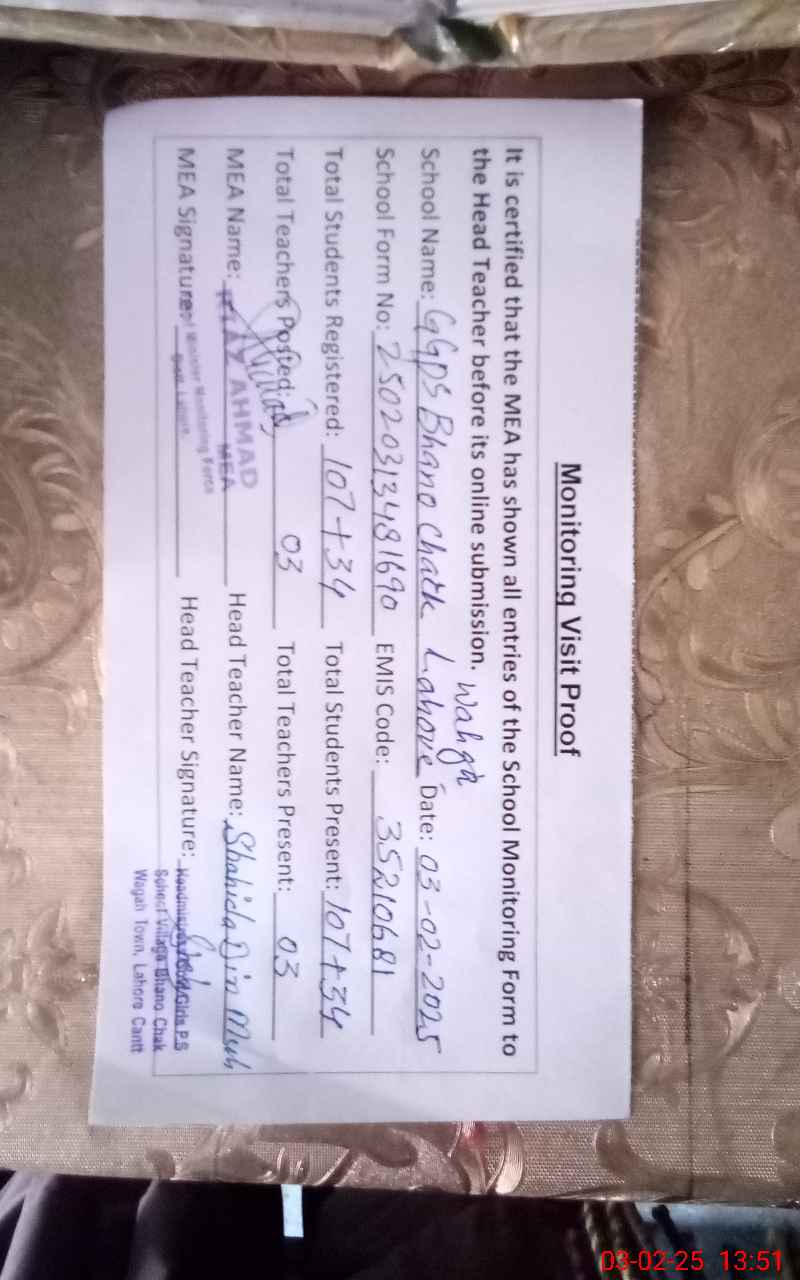 Monitoring Visit Proof
It is certified that the MEA has shown all entries of the School Monitoring Form to
the Head Teacher before its online submission.
School Name: GGPS Bhano Chatk Lahore Wahga Date: 03-02-2025
School Form No: 25020313481690 EMIS Code: 35210681
Total Students Registered: 107+34 Total Students Present: 107+34
Total Teachers Posted: 03 Total Teachers Present: 03
MEA Name: AHMAD Head Teacher Name: Shahida Din Muh
MEA
MEA Signature: Head Teacher Signature:
Minister Monitoring Force
Lahore
Girls P.S
School Village Bhano Chak
Wagah Town, Lahore Cantt
03-02-25 13:51